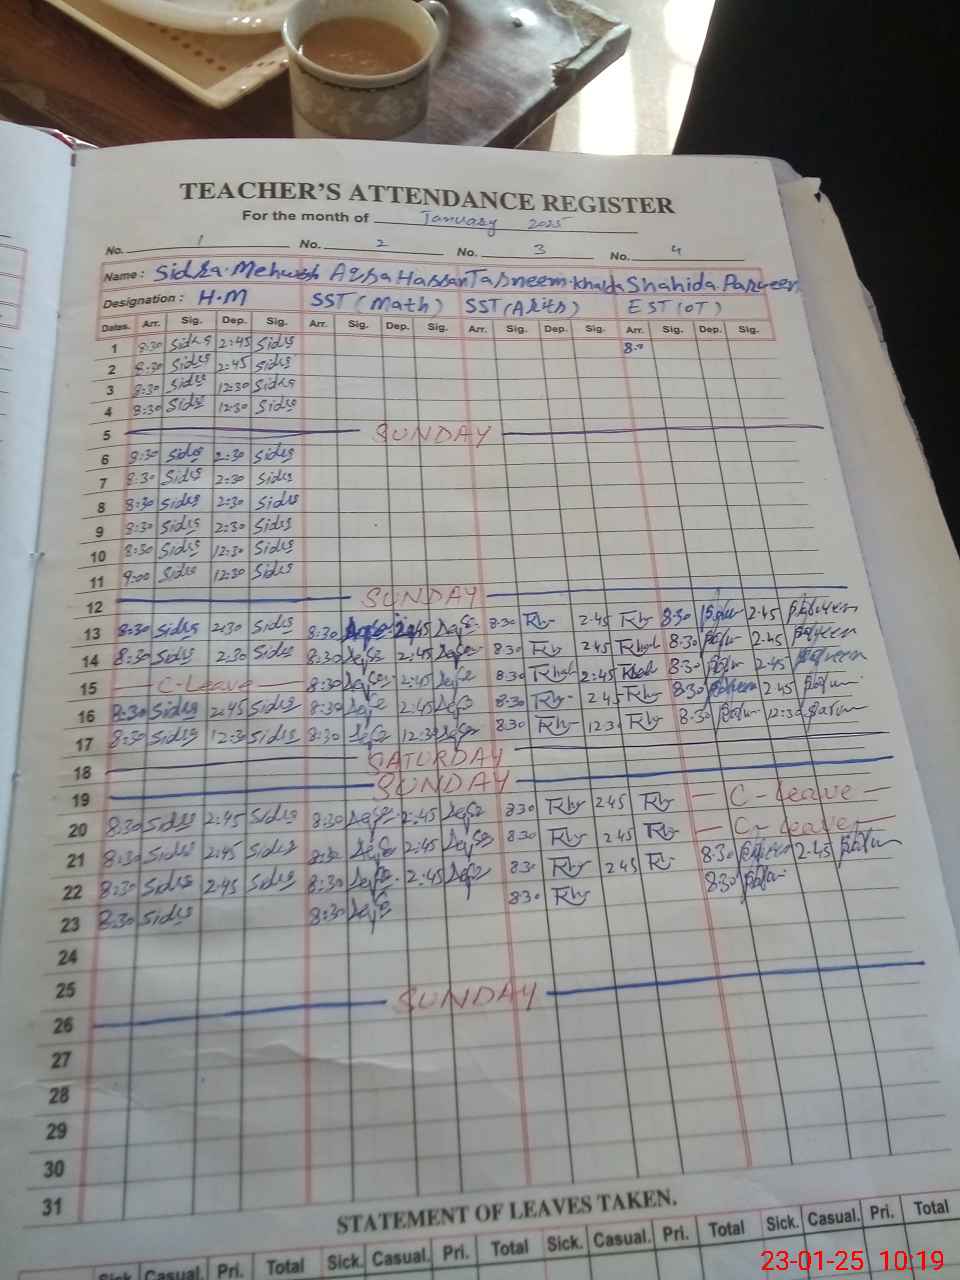 TEACHER'S ATTENDANCE REGISTER
For the month of January 2025
No. 1 No. 2 No. 3 No. 4
Name: Sidra Mehwesh Aqsa Hassan Tasneem Khalda Shahida Parveen
Designation: H.M SST (Math) SST (Arits) EST (OT)
Dates. Arr. Sig. Dep. Sig. Arr. Sig. Dep. Sig. Arr. Sig. Dep. Sig. Arr. Sig. Dep. Sig.
1 8:30 Sidra 2:45 Sidra
2 8:30 Sidra 2:45 Sidra
3 8:30 Sidra 12:30 Sidra
4 8:30 Sidra 12:30 Sidra
5 SUNDAY
6 9:30 Sidra 2:30 Sidra
7 8:30 Sidra 2:30 Sidra
8 8:30 Sidra 2:30 Sidra
9 8:30 Sidra 2:30 Sidra
10 8:30 Sidra 12:30 Sidra
11 9:00 Sidra 12:30 Sidra
12 SUNDAY
13 8:30 Sidra 2:30 Sidra 8:30 2:45 8:30 2:45 8:30 2:45
14 8:30 Sidra 2:30 Sidra 8:30 2:45 8:30 2:45 8:30 2:45
15 C-Leave 8:30 2:45 8:30 2:45 8:30 2:45
16 8:30 Sidra 2:45 Sidra 8:30 2:45 8:30 2:45 8:30 2:45
17 8:30 Sidra 12:30 Sidra 8:30 12:30 8:30 12:30 8:30 12:30
18 SATURDAY
19 SUNDAY
20 8:30 Sidra 2:45 Sidra 8:30 2:45 8:30 2:45 C-Leave
21 8:30 Sidra 2:45 Sidra 8:30 2:45 8:30 2:45 C-Leave
22 8:30 Sidra 2:45 Sidra 8:30 2:45 8:30 2:45 8:30 2:45
23 8:30 Sidra 8:30 8:30 8:30
24
25
26 SUNDAY
27
28
29
30
31
STATEMENT OF LEAVES TAKEN.
Sick Casual. Pri. Total Sick. Casual. Pri. Total Sick. Casual. Pri. Total Sick. Casual. Pri. Total
23-01-25 10:19